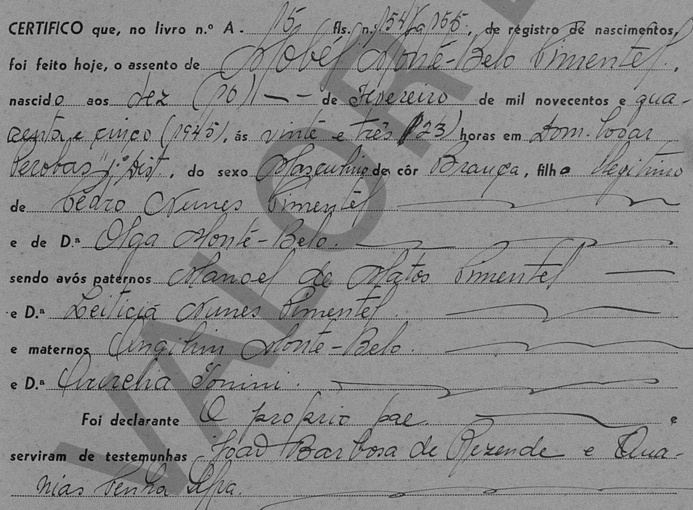 CERTIFICO que, no livro n.º A. 15 fls. n. 154/ registro de nascimentos,
foi feito hoje, o assento de Nobél Monté-Belo Pimentel.
nascido aos dez (10) — de Fevereiro de mil novecentos e qua-
renta e cinco (1945), ás vinte e três (23) horas em Dom. logar
Perobas" 1º Dist., do sexo Masculino de côr Branca, filho legitimo
de Pedro Nunes Pimentel
e de D.ª Olga Monté-Belo.
sendo avós paternos Manoel de Matos Pimentel
e D.ª Leiticia Nunes Pimentel.
e maternos Angilin Monte-Belo.
e D.ª Aurelia Tonini.
Foi declarante O proprio pae. e
serviram de testemunhas Joaõ Barbosa de Rezende e
nias Penha
VALOR